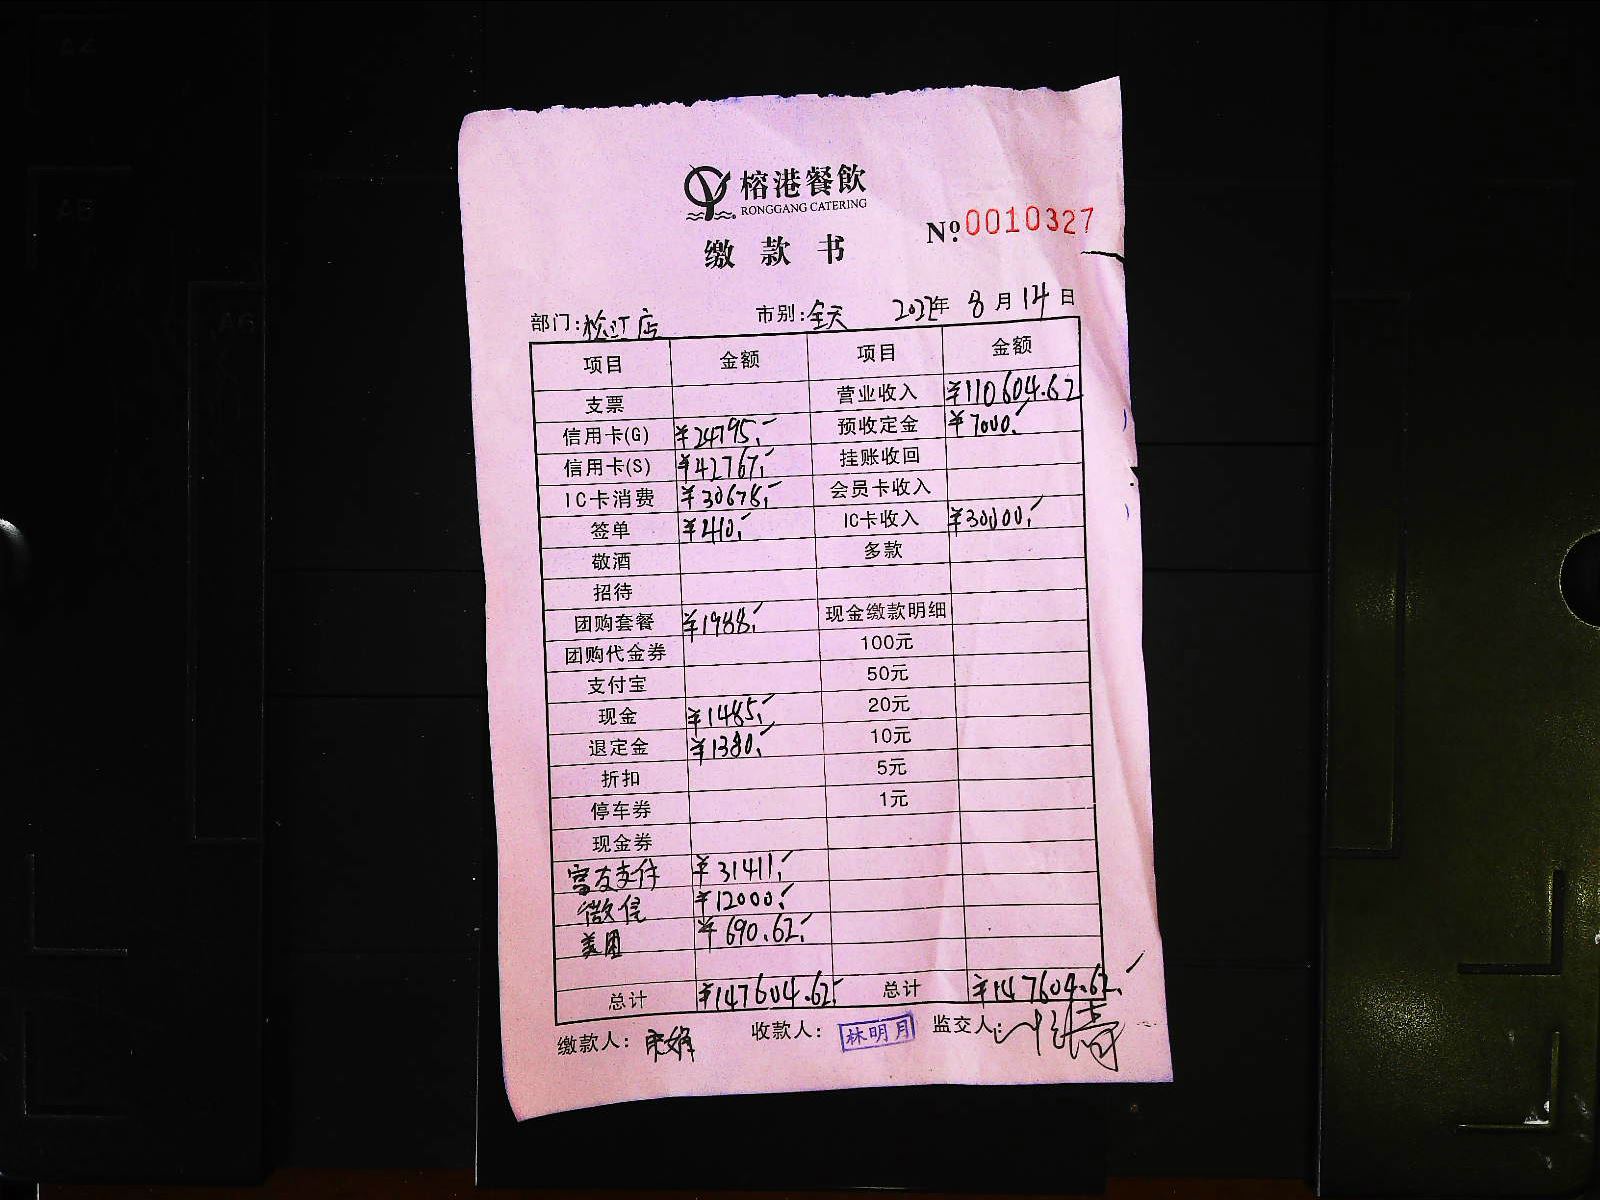 榕港餐飲
RONGGANG CATERING
缴款书
Nº.0010327
部门:松江店 市别:全天 2022年 8月14日
项目 金额 项目 金额
支票 营业收入 ¥110604.62
信用卡(G) ¥24795.- 预收定金 ¥7000.-
信用卡(S) ¥42767.- 挂账收回
IC卡消费 ¥30678.- 会员卡收入
签单 ¥410.- IC卡收入 ¥30000.-
敬酒 多款
招待
团购套餐 ¥1988.- 现金缴款明细
团购代金券 100元
支付宝 50元
现金 ¥1485.- 20元
退定金 ¥1380.- 10元
折扣 5元
停车券 1元
现金券
富友支付 ¥31411.-
微信 ¥12000.-
美团 ¥690.62.-
总计 ¥147604.62.- 总计 ¥147604.62.-
缴款人: 收款人: 林明月 监交人:
A4
A6